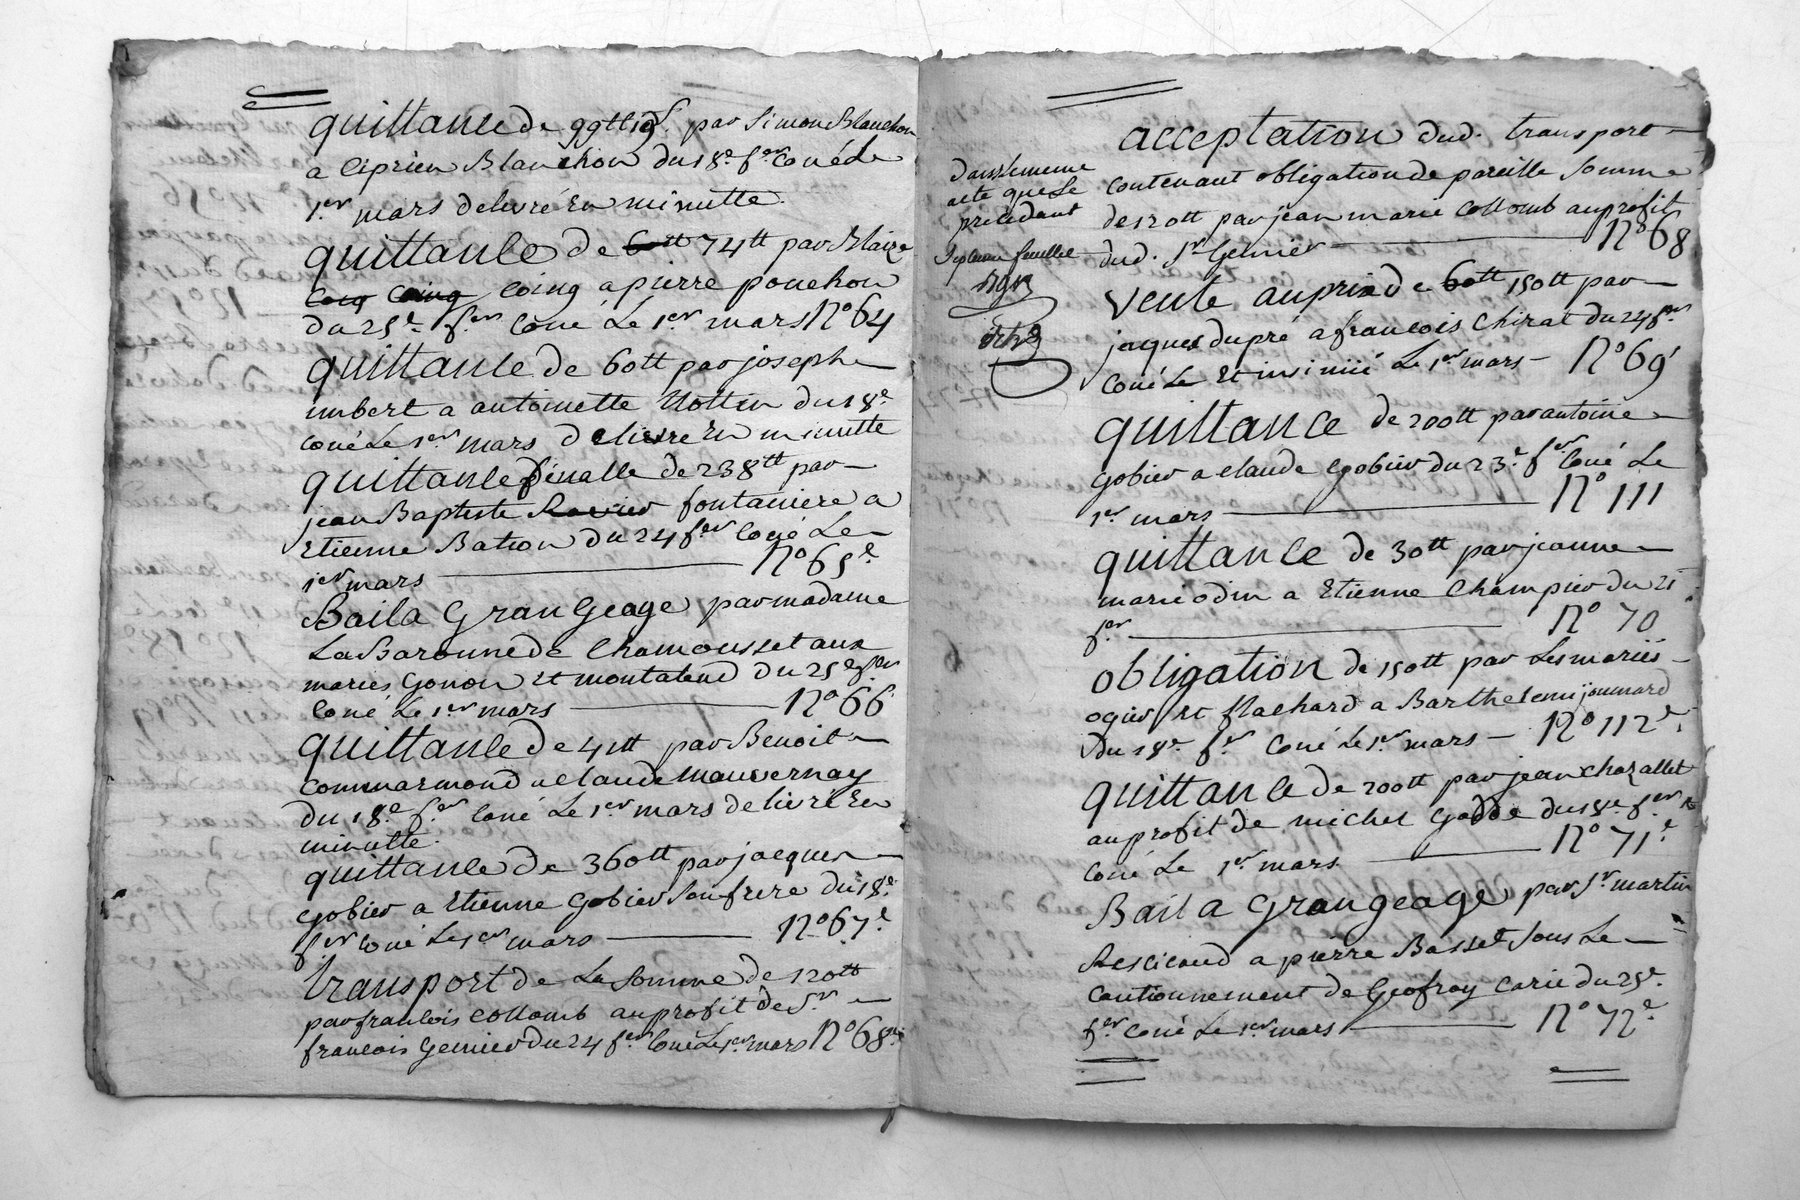 quittance de 99tt 19s. par Simon Blanchon
a Ciprien Blanchon du 18e. fer Coné Le
1er mars delivré En minutte.
quittance de 74tt par Blaize
Coing a pierre ponchon
du 25e. fer Coné Le 1er mars No 64
quittance de 60tt par joseph
imbert a antoinette du 18e.
Coné Le 1er mars delivré En minutte
quittance finalle de 238tt par
jean Baptiste fontaniere a
Etienne Bation du 24 fer Coné Le
1er mars No 65e
Bail a Grangeage par madame
La Baronne de Chamousset aux
mariés Gonon Et montaland du 25e fer
Coné Le 1er mars No 66
quittance de 41tt par Benoit
Commarmond a Claude mauvernay
du 18e fer Coné Le 1er mars delivré En
minutte.
quittance de 360tt par jacques
Gobier a Etienne Gobier Son frere du 18e.
fer Coné Le 1er mars No 67e
transport de La Somme de 120tt
par francois Collomb au profit de Sr
francois Genier du 24 fer Coné Le 1er mars No 68
acceptation dud. transport
dans Le meme
acte que Le
precedant
Contenant obligation de pareille Somme
de 120tt par jean marie Collomb au profit
dud. Sr Genier No 68
vente au prix de 150tt par
jaques dupré a francois Chirat du 24 fer
Coné Le Et insinué Le 1er mars No 69
quittance de 200tt par antoine
Gobier a Claude Gobier du 23e. fer Coné Le
1er mars No 111
quittance de 30tt par jeanne
marie odin a Etienne Champier du 25
fer No 70
obligation de 150tt par Les mariés
ogier Et flachard a Barthelemi joumard
du 18e. fer Coné Le 1er mars No 112e.
quittance de 200tt par jean chazallet
au profit de michel Godde du 18e fer
Coné Le 1er mars No 71e
Bail a Grangeage par Sr martin
Rescicaud a pierre Basset Sous Le
Cautionnement de Geofray Carie du 25e.
fer Coné Le 1er mars No 72e